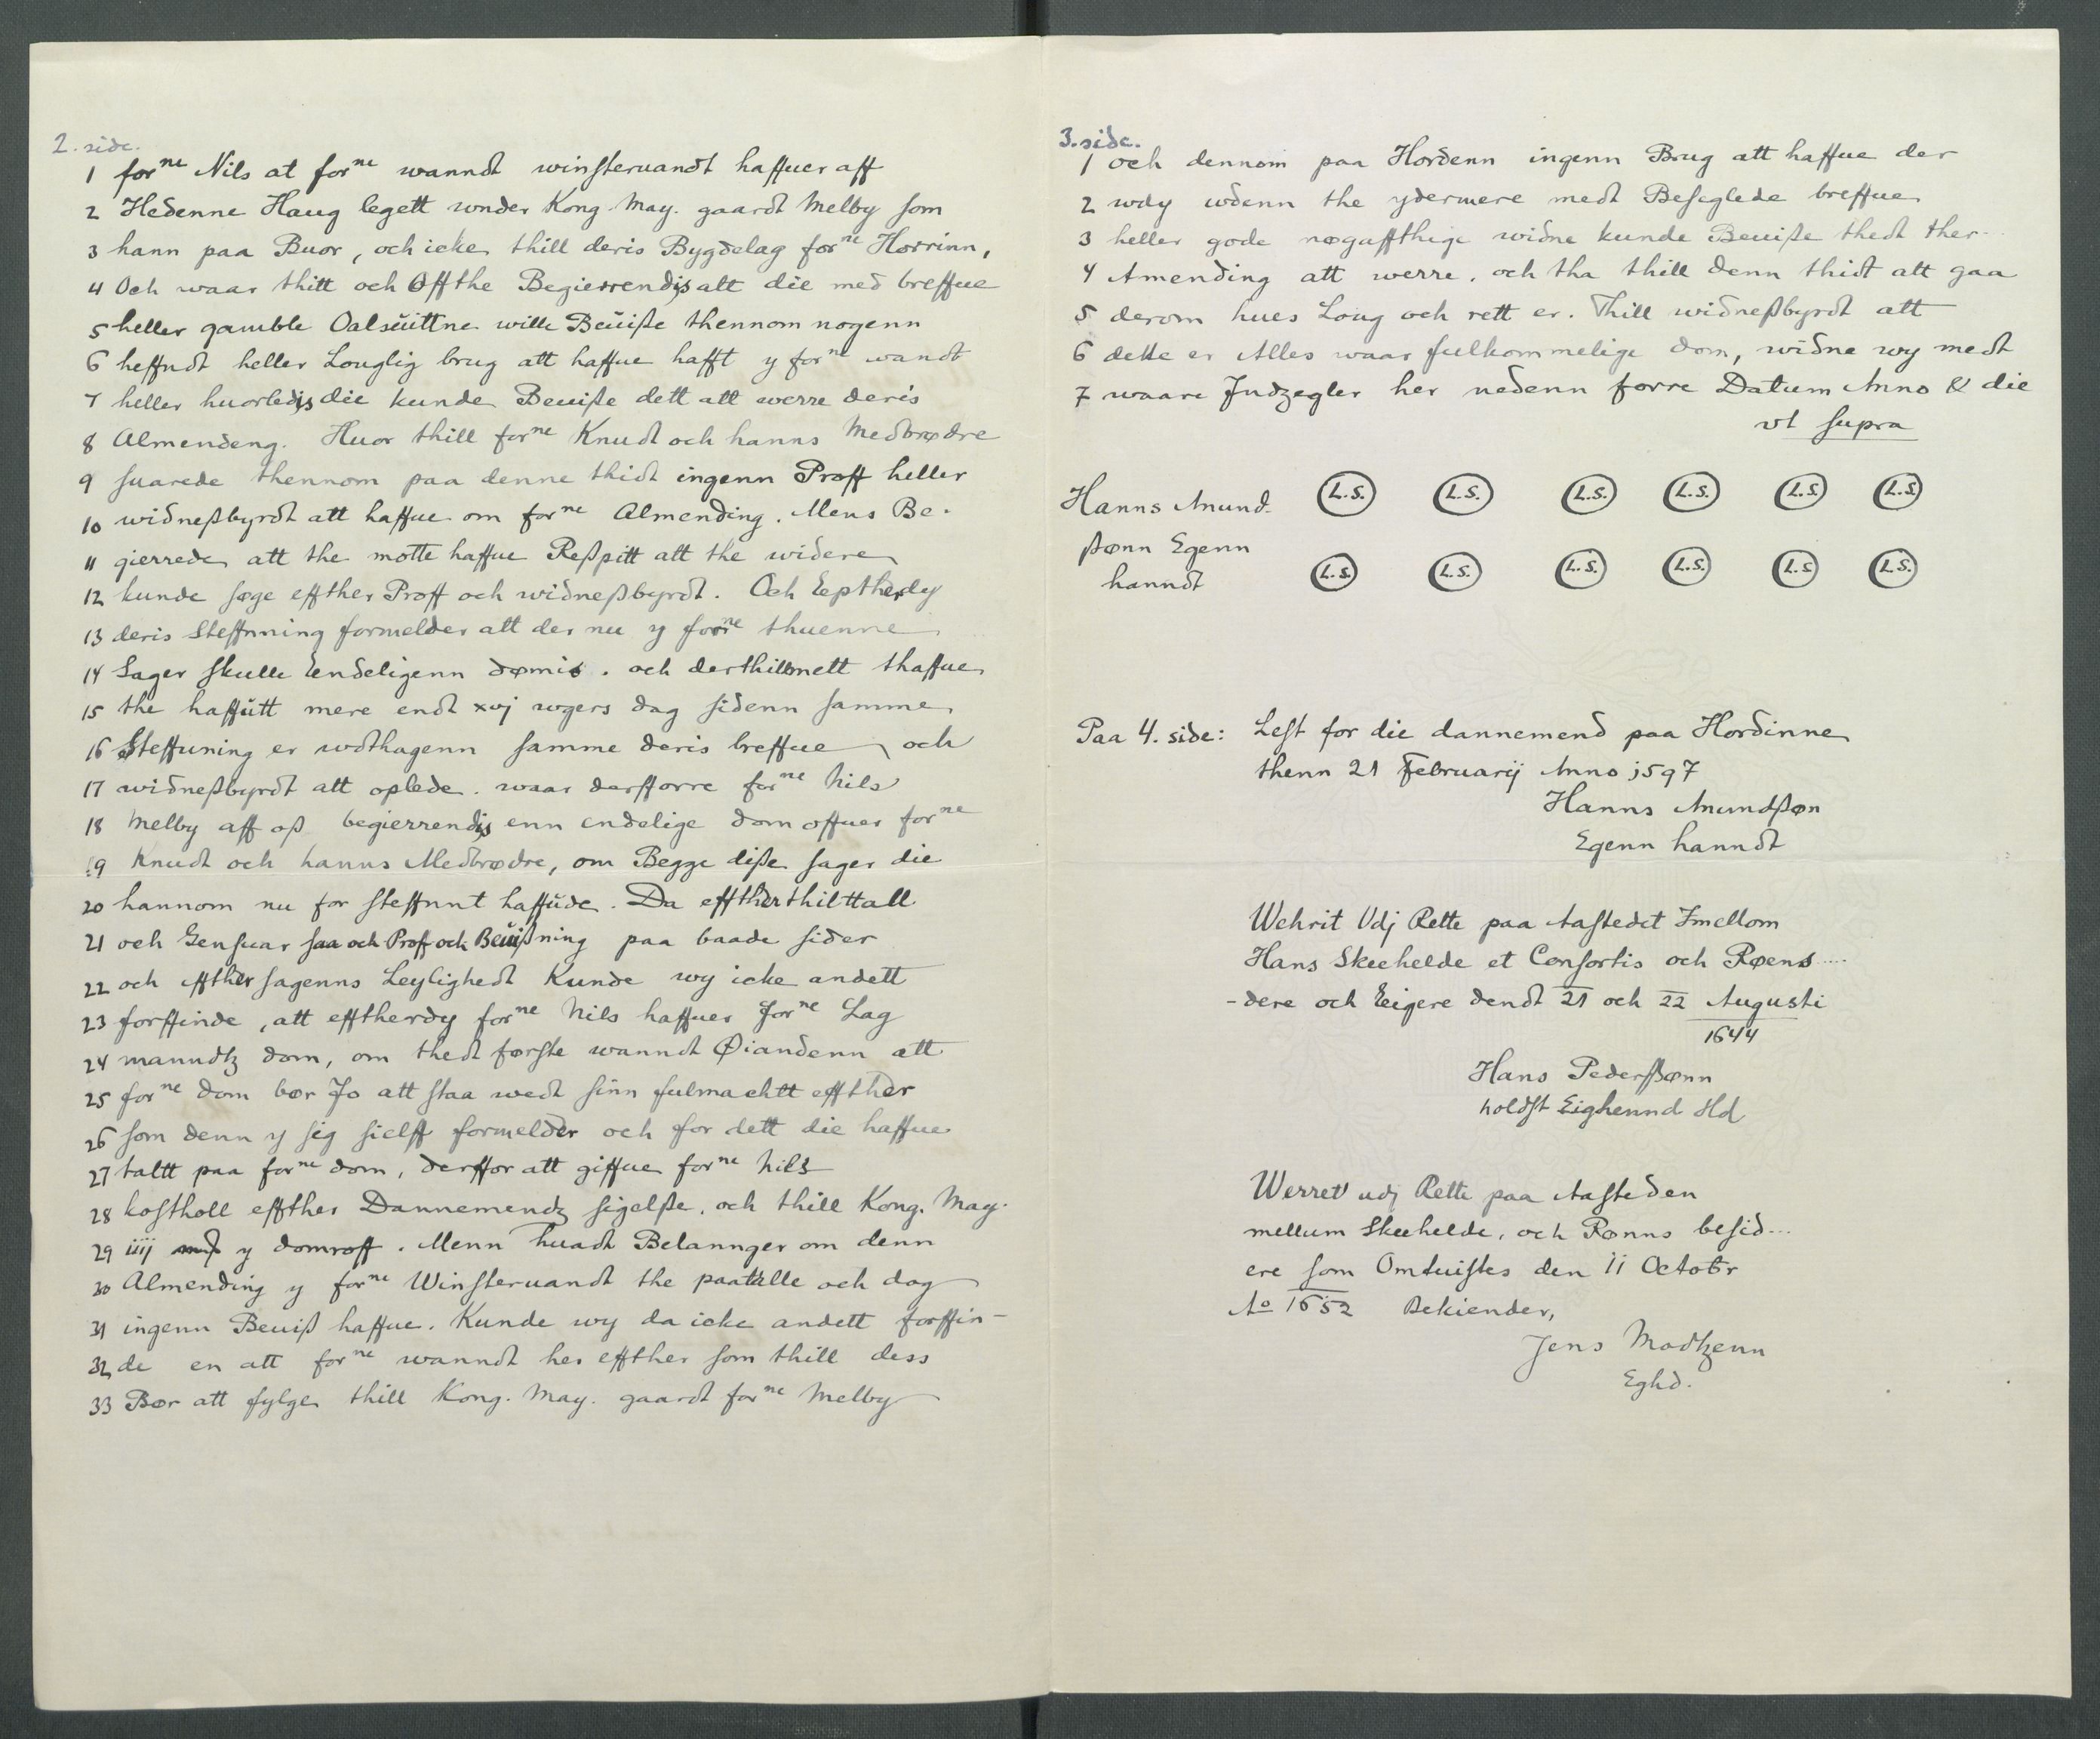 2. side.
1 for^ne Nils at for^ne wanndt winsteruandt haffuer aff
2 Hedenne Haug legett wnder Kong May. gaardt Melby som
3 hann paa Buor, och icke thill deris Bygdelag for^ne Horrinn,
4 Och waar thitt och Offthe Begierrendis att die med breffue
5 heller gamble Oalsŭittne wille Beŭiße thennom nogenn
6 heffndt heller Louglig brug att haffue hafft y for^ne wandt
7 heller huorledis die kunde Beuiße dett att werre deris
8 Almendeng. Huor thill for^ne Knudt och hanns Medbrødre
9 suarede thennom paa denne thidt ingenn Proff heller
10 widneßbyrdt att haffue om for^ne Almending. Mens Be-
11 gierrede att the motte haffue Reßpitt att the widere
12 kunde søge effther Proff och widneßbyrdt. Och Eptherdy
13 deris Steffnning formelder att der nu y for^ne thuenne
14 Sager skulle Endeligenn dømis. och derthillmett thaffue
15 the haffŭtt mere endt xvj wgers dag sidenn samme
16 Steffuning er wdthagenn samme deris breffue och
17 widneßbyrdt att oplede. waar derfforre for^ne Nils
18 Melby aff oß begierrendis enn endelige dom offuer for^ne
19 Knudt och hanns Medbrødre, om Begge diße sager die
20 hannom nu for steffnnt haffŭde. Da efftherthilttall
21 och Gensuar saa och Prof och Beŭißning paa baade sider
22 och effther sagenns Leylighedt Kunde wy icke andett
23 forffinde, att efftherdy for^ne Nils haffuer for^ne Lag
24 manndtz dom, om thedt første wanndt Øiandenn att
25 for^ne dom bør Jo att staa wedt sinn fulmachtt effther
26 som denn y sig sielff formelder och for dett die haffue
27 taltt paa for^ne dom, derffor att giffue for^ne Nils
28 kostholl effther Dannemendz sigelße. och thill Kong. May.
29 iiij y domroff. Menn huadt Belannger om denn
30 Almending y for^ne Winsteruandt the paatalle och dog
31 ingenn Beuiß haffue. Kunde wy da icke andett forffin-
32 de en att for^ne wanndt her effther som thill dess
33 Bør att fylge thill Kong. May. gaardt for^ne Melby
3. side.
1 och dennom paa Hordenn ingenn Brug att haffue der
2 wdy wdenn the ydermere medt Beseglede breffue
3 heller gode nøgaffthige widne kunde Beuiße thedt ther-
4 Amending att werre. och tha thill denn thidt att gaa
5 derom hues Loug och rett er. Thill widneßbyrdt att
6 dette er Alles waar fulkommelige dom, widne wy medt
7 waare Indzegler her nedenn forre Datum Anno & die
vt supra
Hanns Amund- L.S. L.S. L.S. L.S. L.S. L.S.
ßønn Egenn
hanndt L.S. L.S. L.S. L.S. L.S. L.S.
Paa 4. side: Lest for die dannemend paa Hordinne
thenn 21 Februarij Anno j597
Hanns Amundßøn
Egenn hanndt
Wehrit Udj Rette paa Aastedet Imellom
Hans Skeehelde et Consortis och Røens....
-dere och Eeigere dendt 21 och 22 Augusti
1644
Hans Pederßønn
holdst Eighennd Hd
Werret udj Rette paa Aasteden
mellum Skeehelde, och Rønns besid...
ere som Omtuistes den 11 Octobr
A° 1652 Bekiender,
Jens Madtzenn
Eghd.